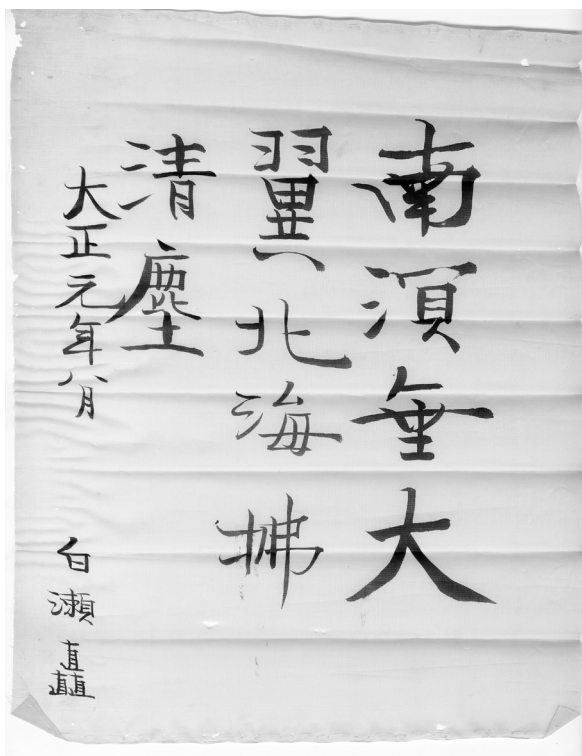 南溟垂大
翼北海拂
清塵
大正元年八月
白瀬矗